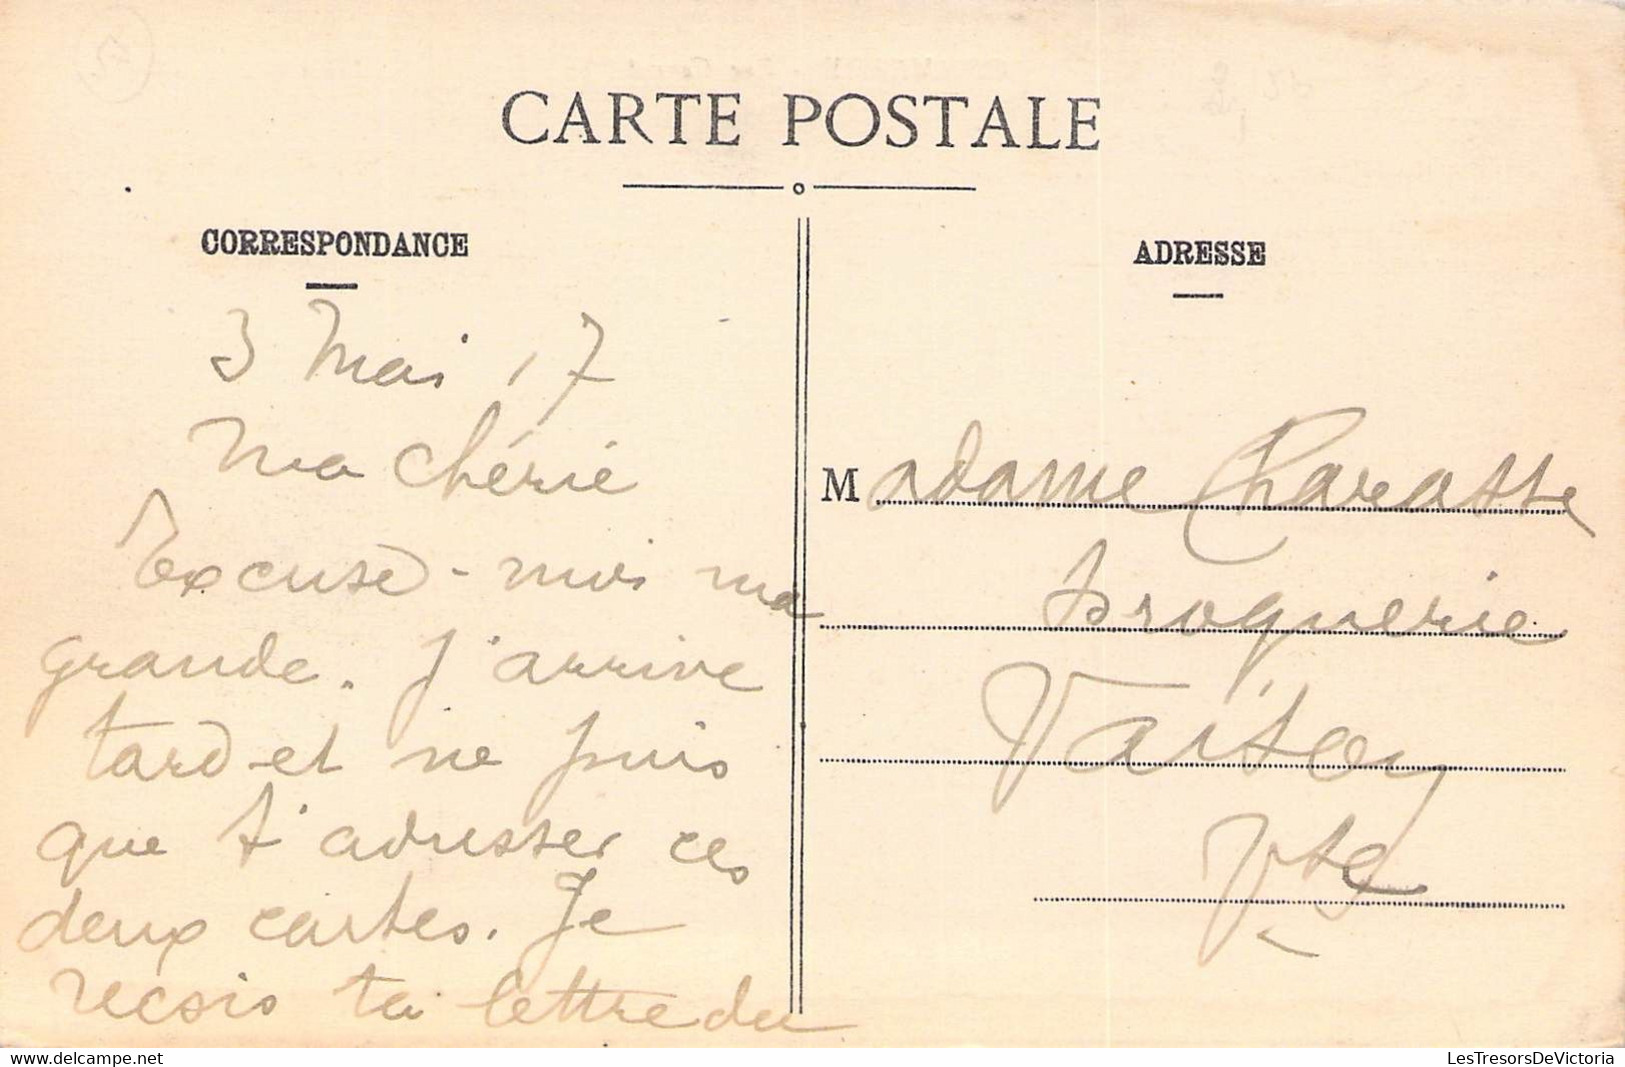 CARTE POSTALE
CORRESPONDANCE
ADRESSE
3 Mai 17
Ma chérie
Excuse-moi ma
grande. J'arrive
tard et ne puis
que t'adresser ces
deux cartes. Je
reçois ta lettre du
Madame Charasse
Droguerie
Vaison
Vse
LesTresorsDeVictoria
delcampe.net